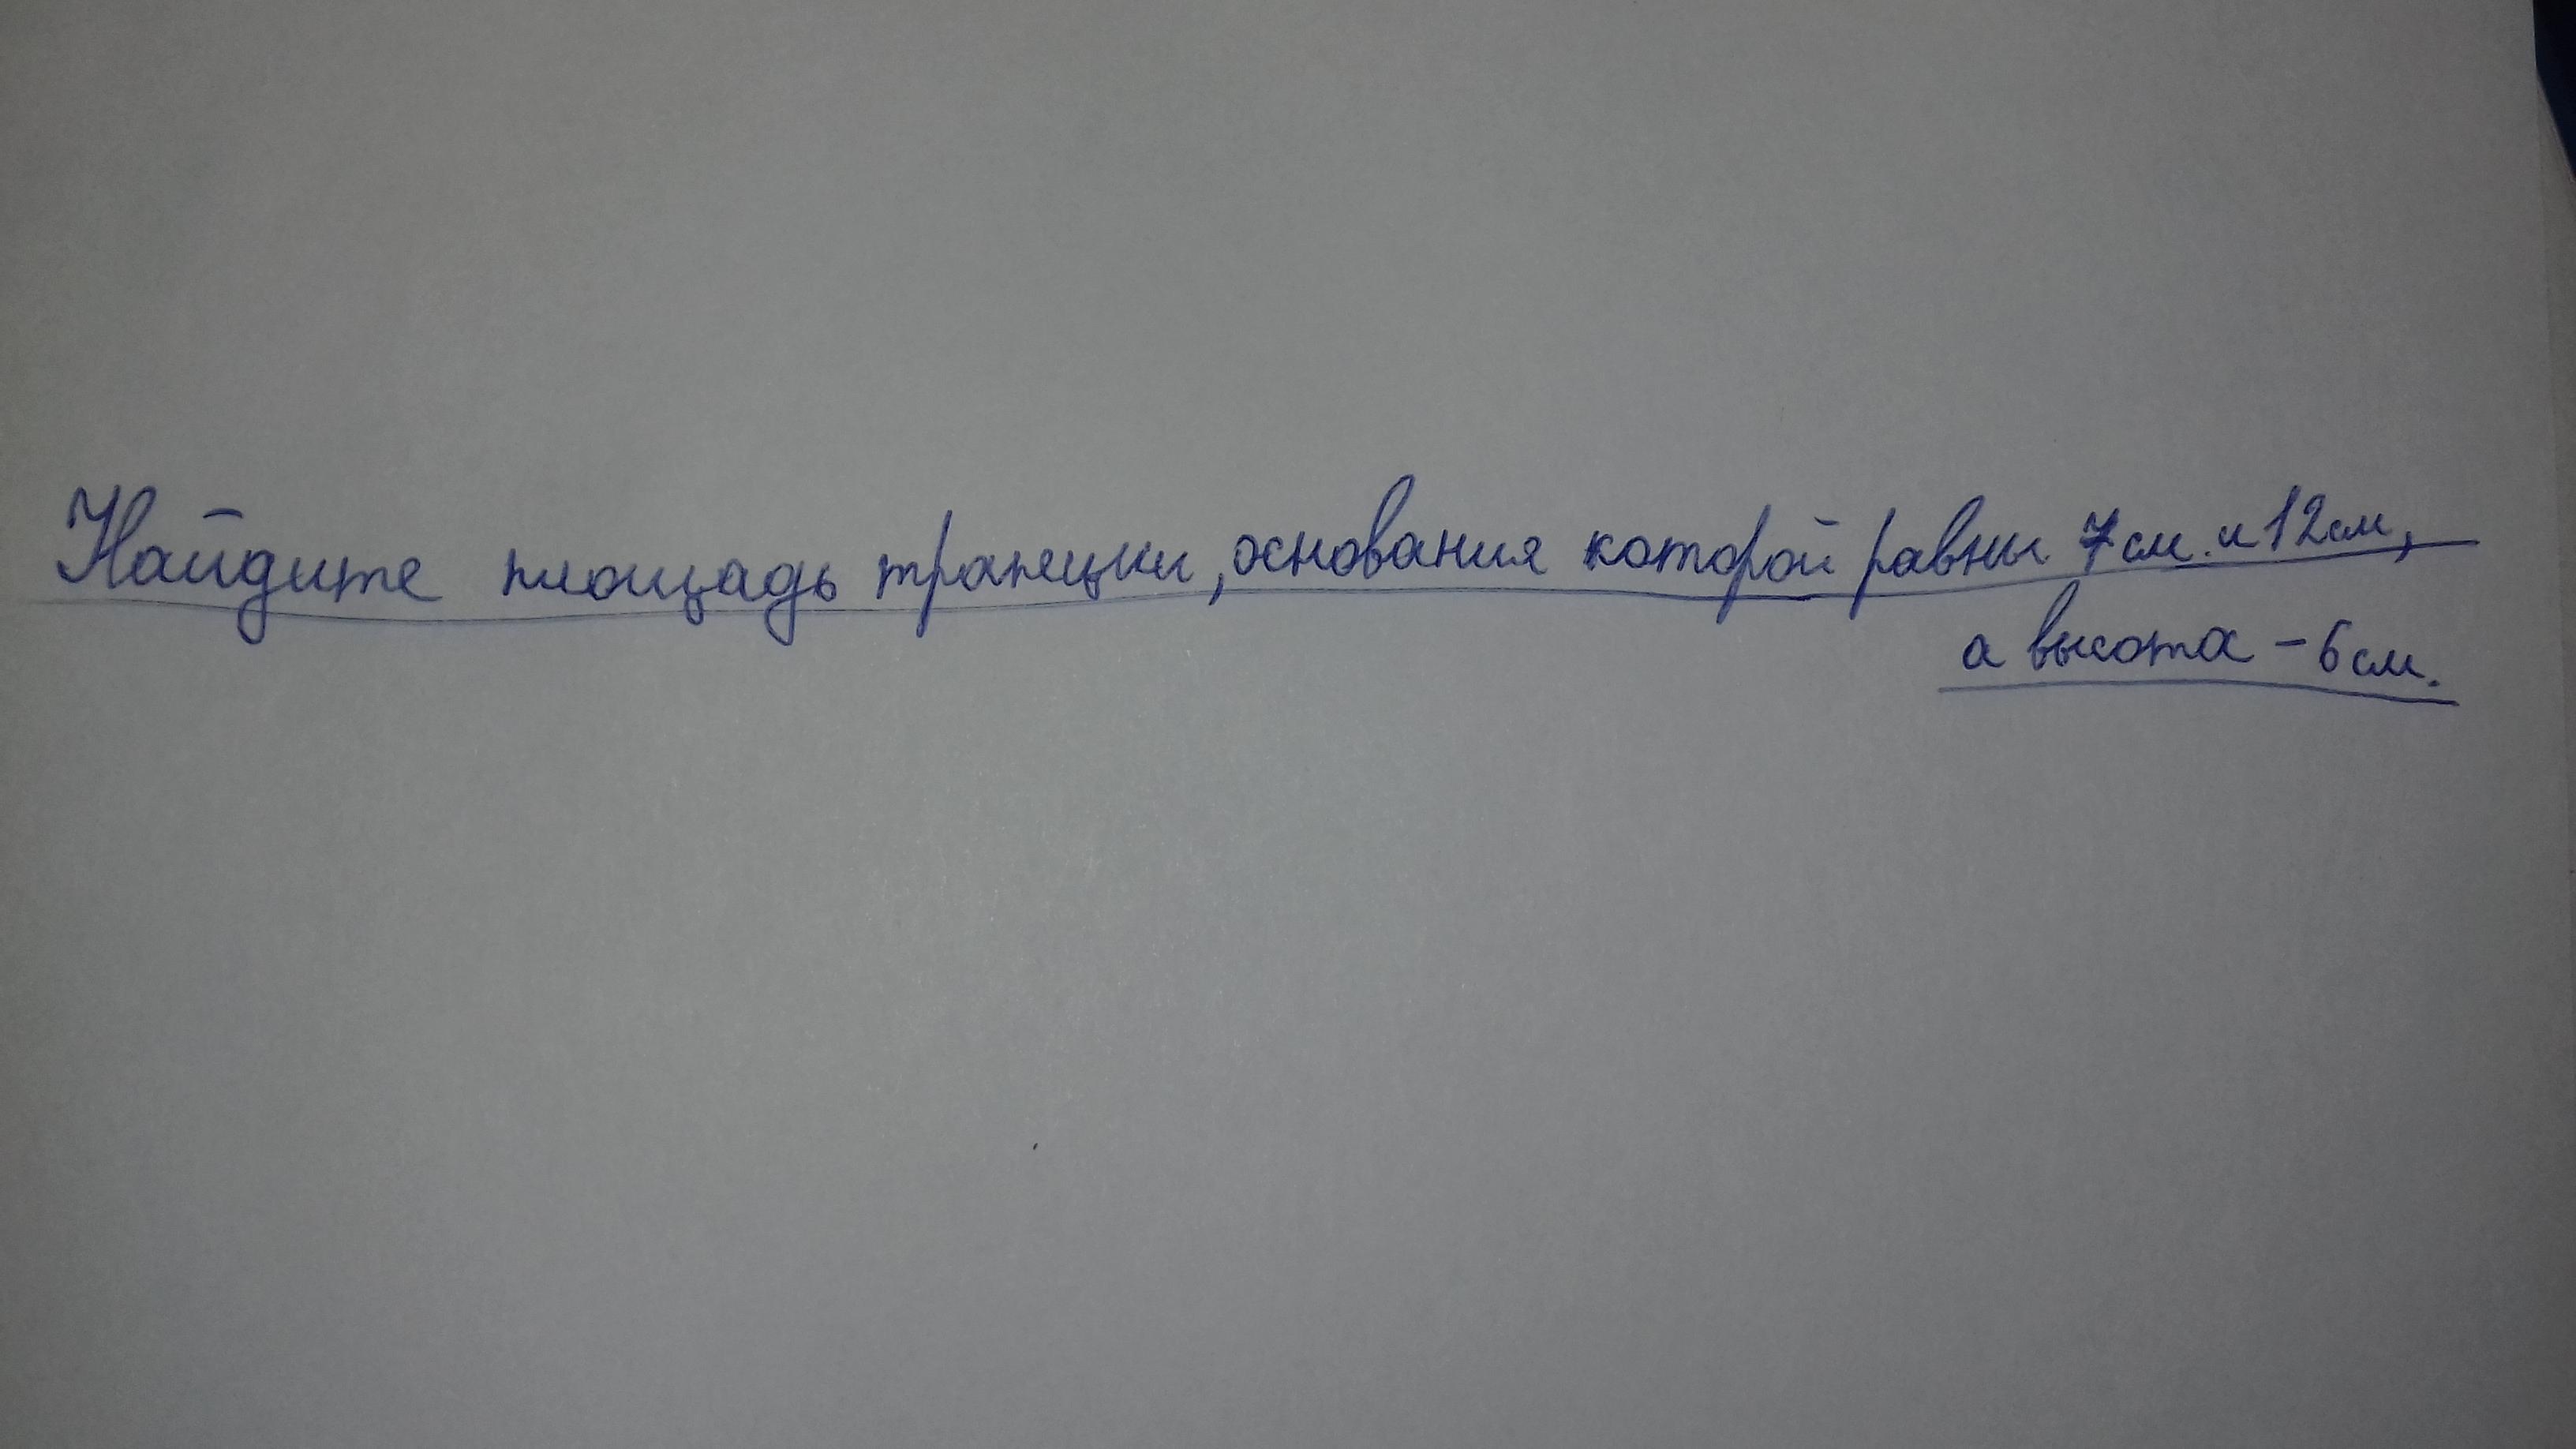 Найдите площадь трапеции, основания которой равны 7 см. и 12 см,
а высота - 6 см.